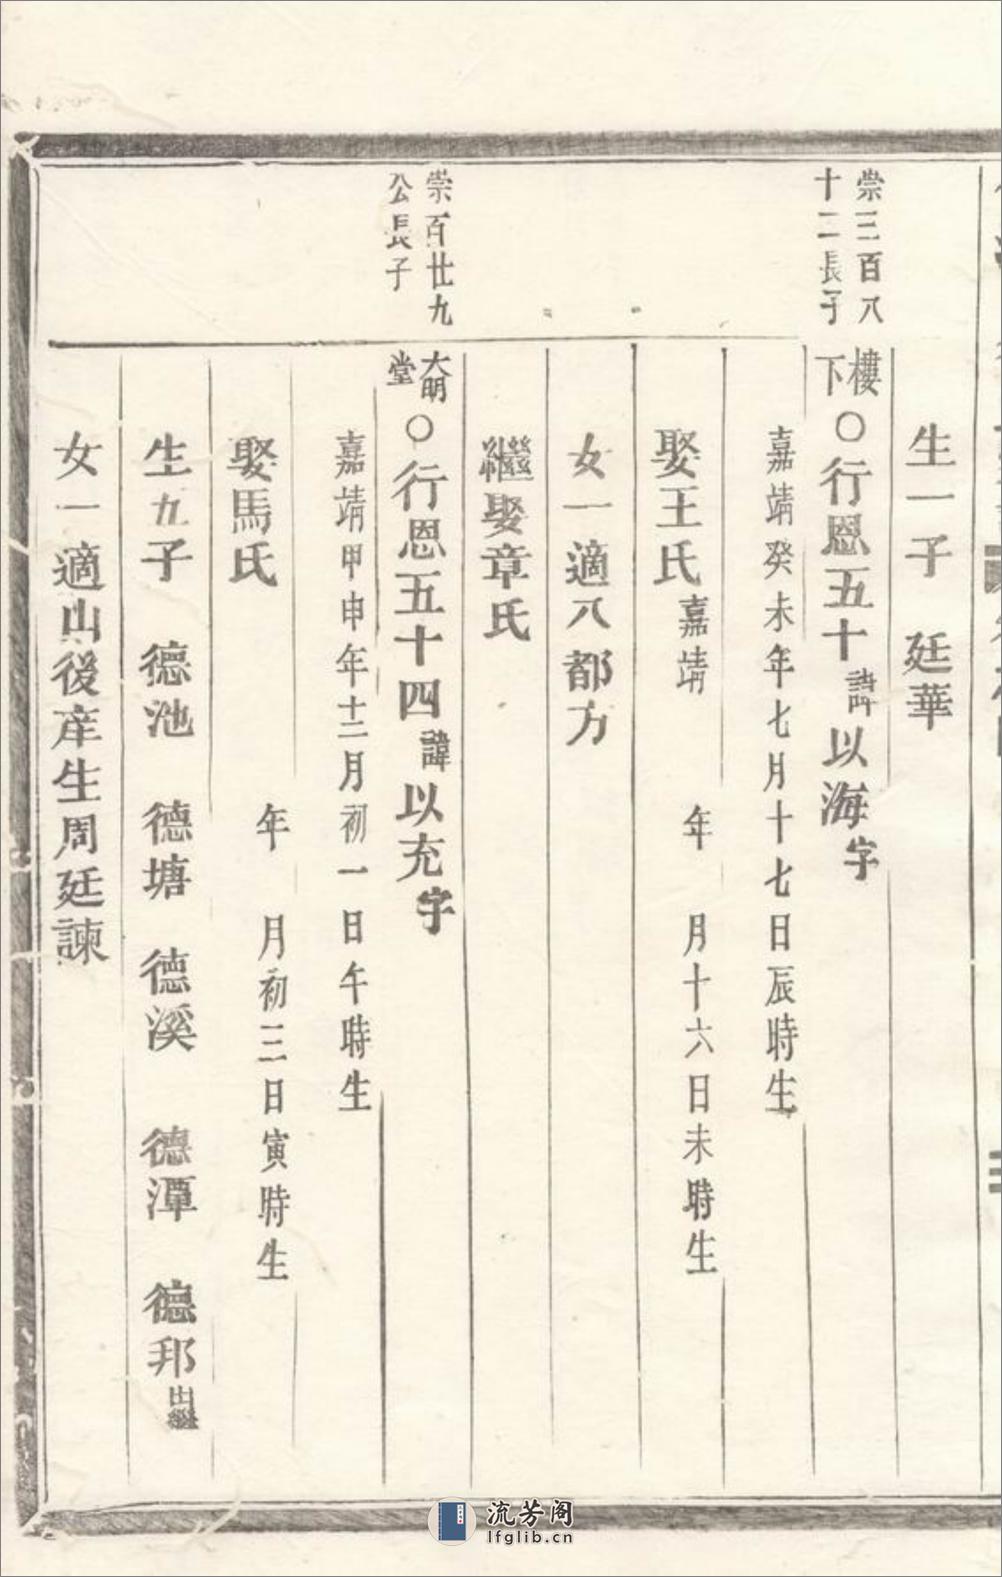 生一子　廷華
崇三百八
十二長子
樓下○行恩五十諱以海字
嘉靖癸未年七月十七日辰時生
娶王氏嘉靖　年　月十六日未時生
女一適八都方
繼娶章氏
崇百廿九
公長子
大明堂○行恩五十四諱以充字
嘉靖甲申年十二月初一日午時生
娶馬氏　年　月初三日寅時生
生九子　德池　德塘　德溪　德潭　德邦出繼
女一適山後庠生周廷諫
流芳阁
lfglib.cn